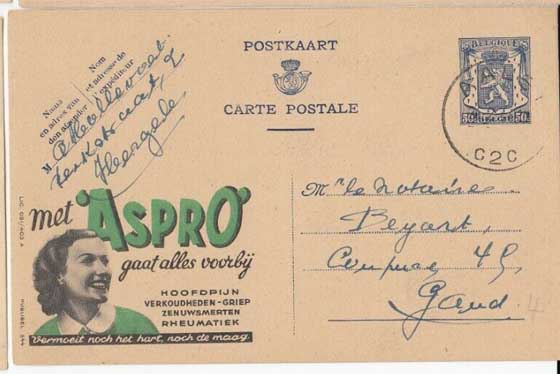 POSTKAART
CARTE POSTALE
Nom
et adresse de
l'expéditeur
Naam
en adres van
den afzender
M
BELGIQUE
50 50
BELGIE
C2C
Mr le Notaire
Gand
LIC. 051/403 A
PUBLIBEL 544
met "ASPRO"
gaat alles voorbij
HOOFDPIJN
VERKOUDHEDEN-GRIEP
ZENUWSMERTEN
RHEUMATIEK
Vermoeit noch het hart, noch de maag.